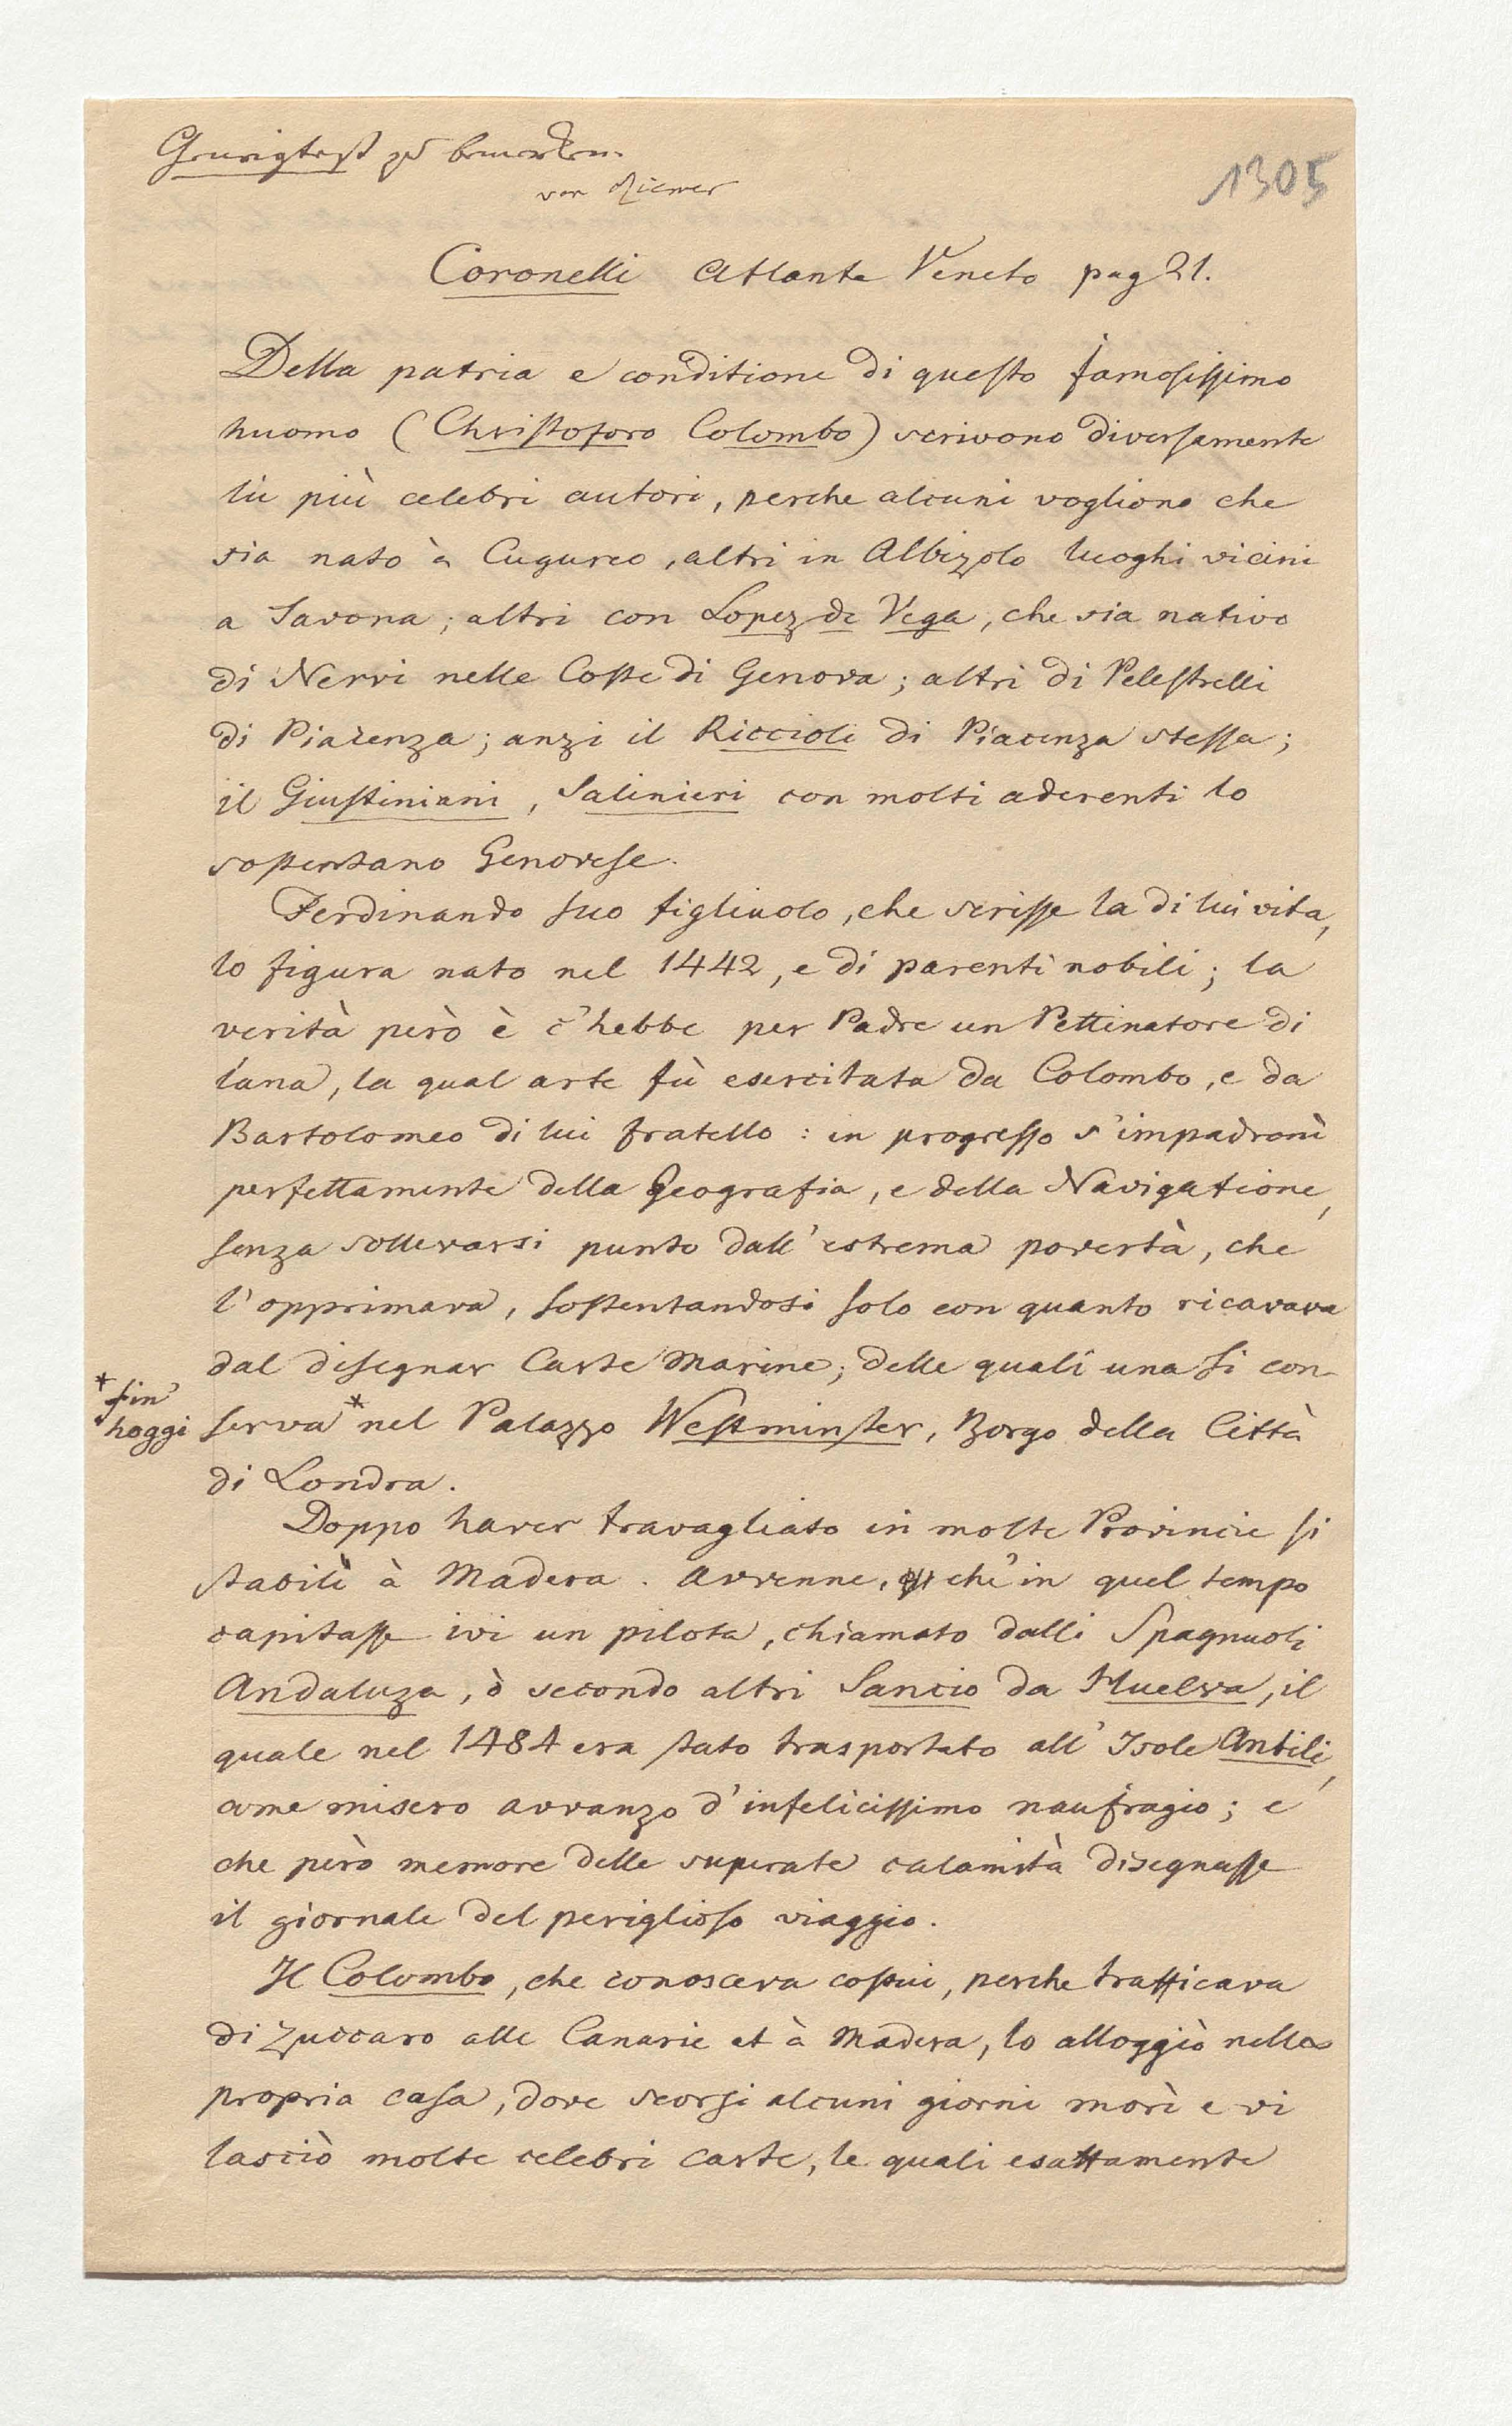 zu bemerken.
von Ziemer
1305
Coronelli Atlante Veneto pag 21.
Della patria e conditione di questo famosissimo
huomo (Christoforo Colombo) scrivono diversamente
lii più celebri autori, perche alcuni vogliono che
sia nato à Cugureo, altri in Albizolo luoghi vicini
a Savona; altri con Lopez de Vega, che sia nativo
di Nervi nelle Coste di Genova; altri di Pelestrelli
di Piacenza; anzi il Riccioli di Piacenza stessa;
il Giustiniani, Salinieri con molti aderenti lo
sostentano Genovese.
Ferdinando suo figliuolo, che scrisse la di lui vita,
lo figura nato nel 1442, e di parenti nobili; la
verità però è c'hebbe per Padre un Pettinatore di
lana, la qual arte fù esercitata da Colombo, e da
Bartolomeo di lui fratello: in progresso s'impadronì
perfettamente della Geografia, e della Navigatione,
senza sollevarsi punto dall'estrema povertà, che
l'opprimava, sostentandosi solo con quanto ricavava
dal disegnar Carte Marine; delle quali una si con-
* fin'
hoggi
serva* nel Palazzo Westminster, Borgo della Città
di Londra.
Doppo haver travagliato in molte Provincie si
stabilì à Madera. Avvenne, che'in quel tempo
capitasse ivi un pilota, chiamato dalli Spagnuoli
Andaluza, ò secondo altri Sancio da Huelva, il
quale nel 1484 era stato trasportato all'Isole Antili,
come misero avvanzo d'infelicissimo naufragio; e
che però memore delle superate calamità disegnasse
il giornale del periglioso viaggio.
Il Colombo, che conosceva costui, perche trafficava
di Zuccaro alle Canarie et à Madera, lo alloggiò nella
propria casa, dove scorsi alcuni giorni morì e vi
lasciò molte celebri carte, le quali esattamente